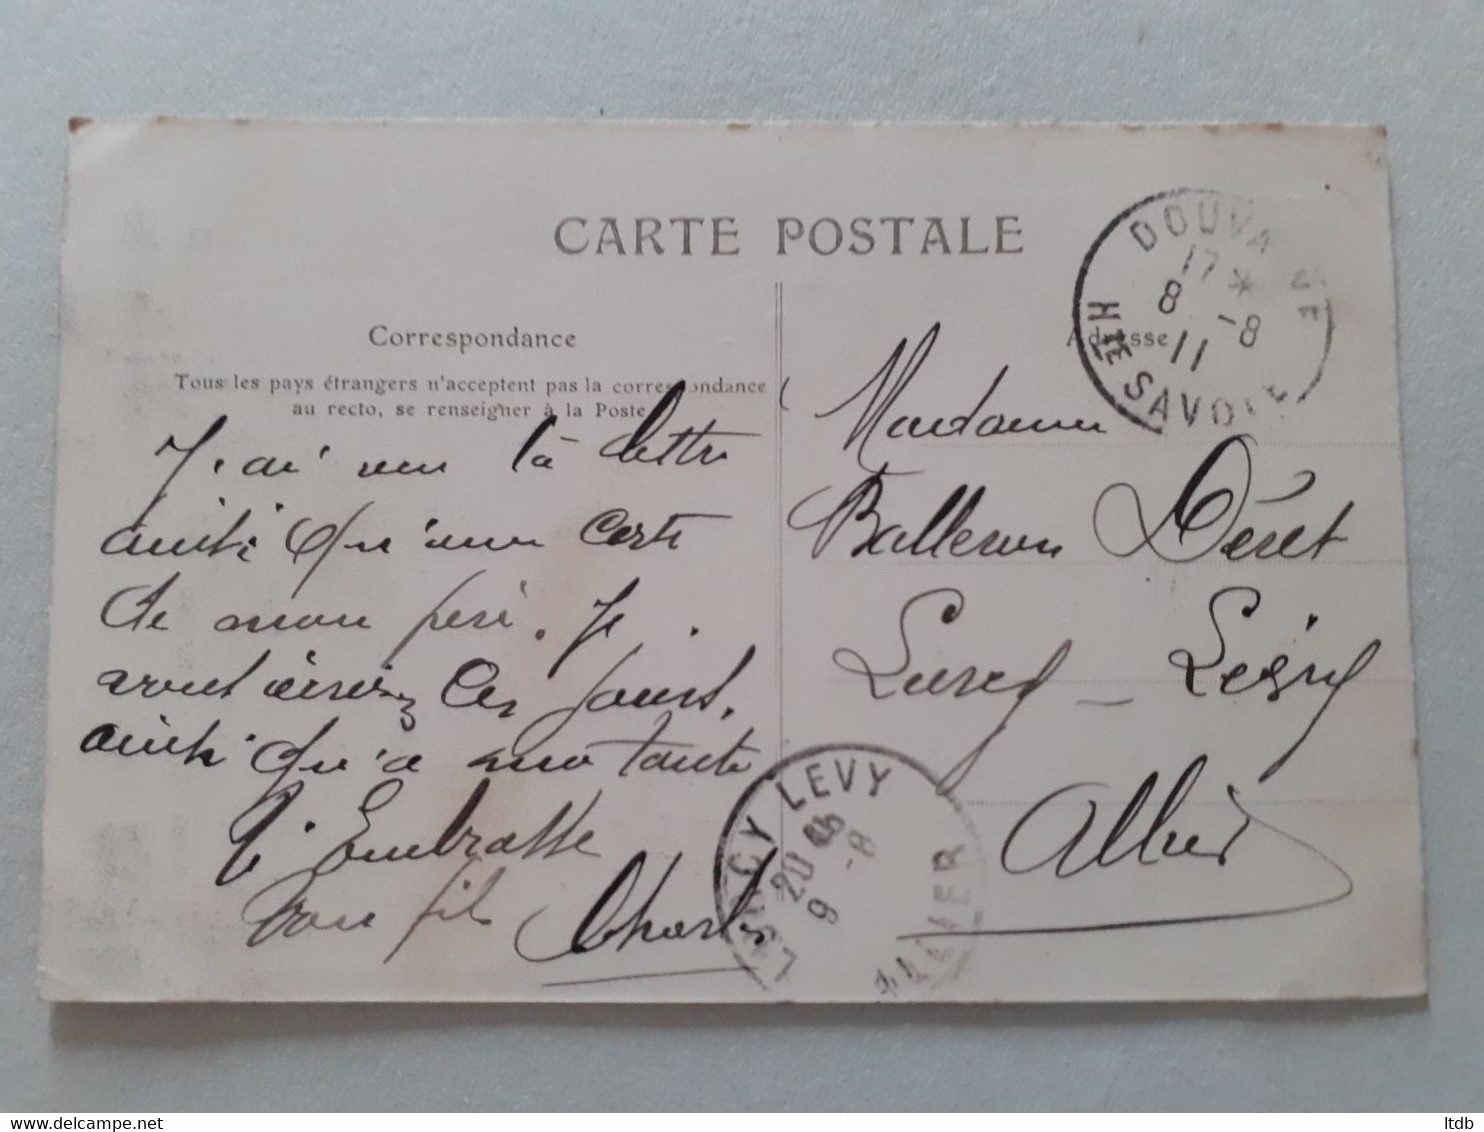 CARTE POSTALE
Correspondance
Tous les pays étrangers n'acceptent pas la correspondance
au recto, se renseigner à la Poste
J.ai reçu ta lettre
ainsi qu'une carte
de mon père. Je
vous écrirez ces jours.
ainsi qu'a ma tante
t'embrasse
Ton fils Charles
Adresse
Madame
Balleron Déret
Lurcy - Lévy
Allier
DOUVAINE
17 *
8 -8
11
HTE SAVOIE
LURCY LEVY
20
9 -8
ALLIER
www.delcampe.net
ltdb